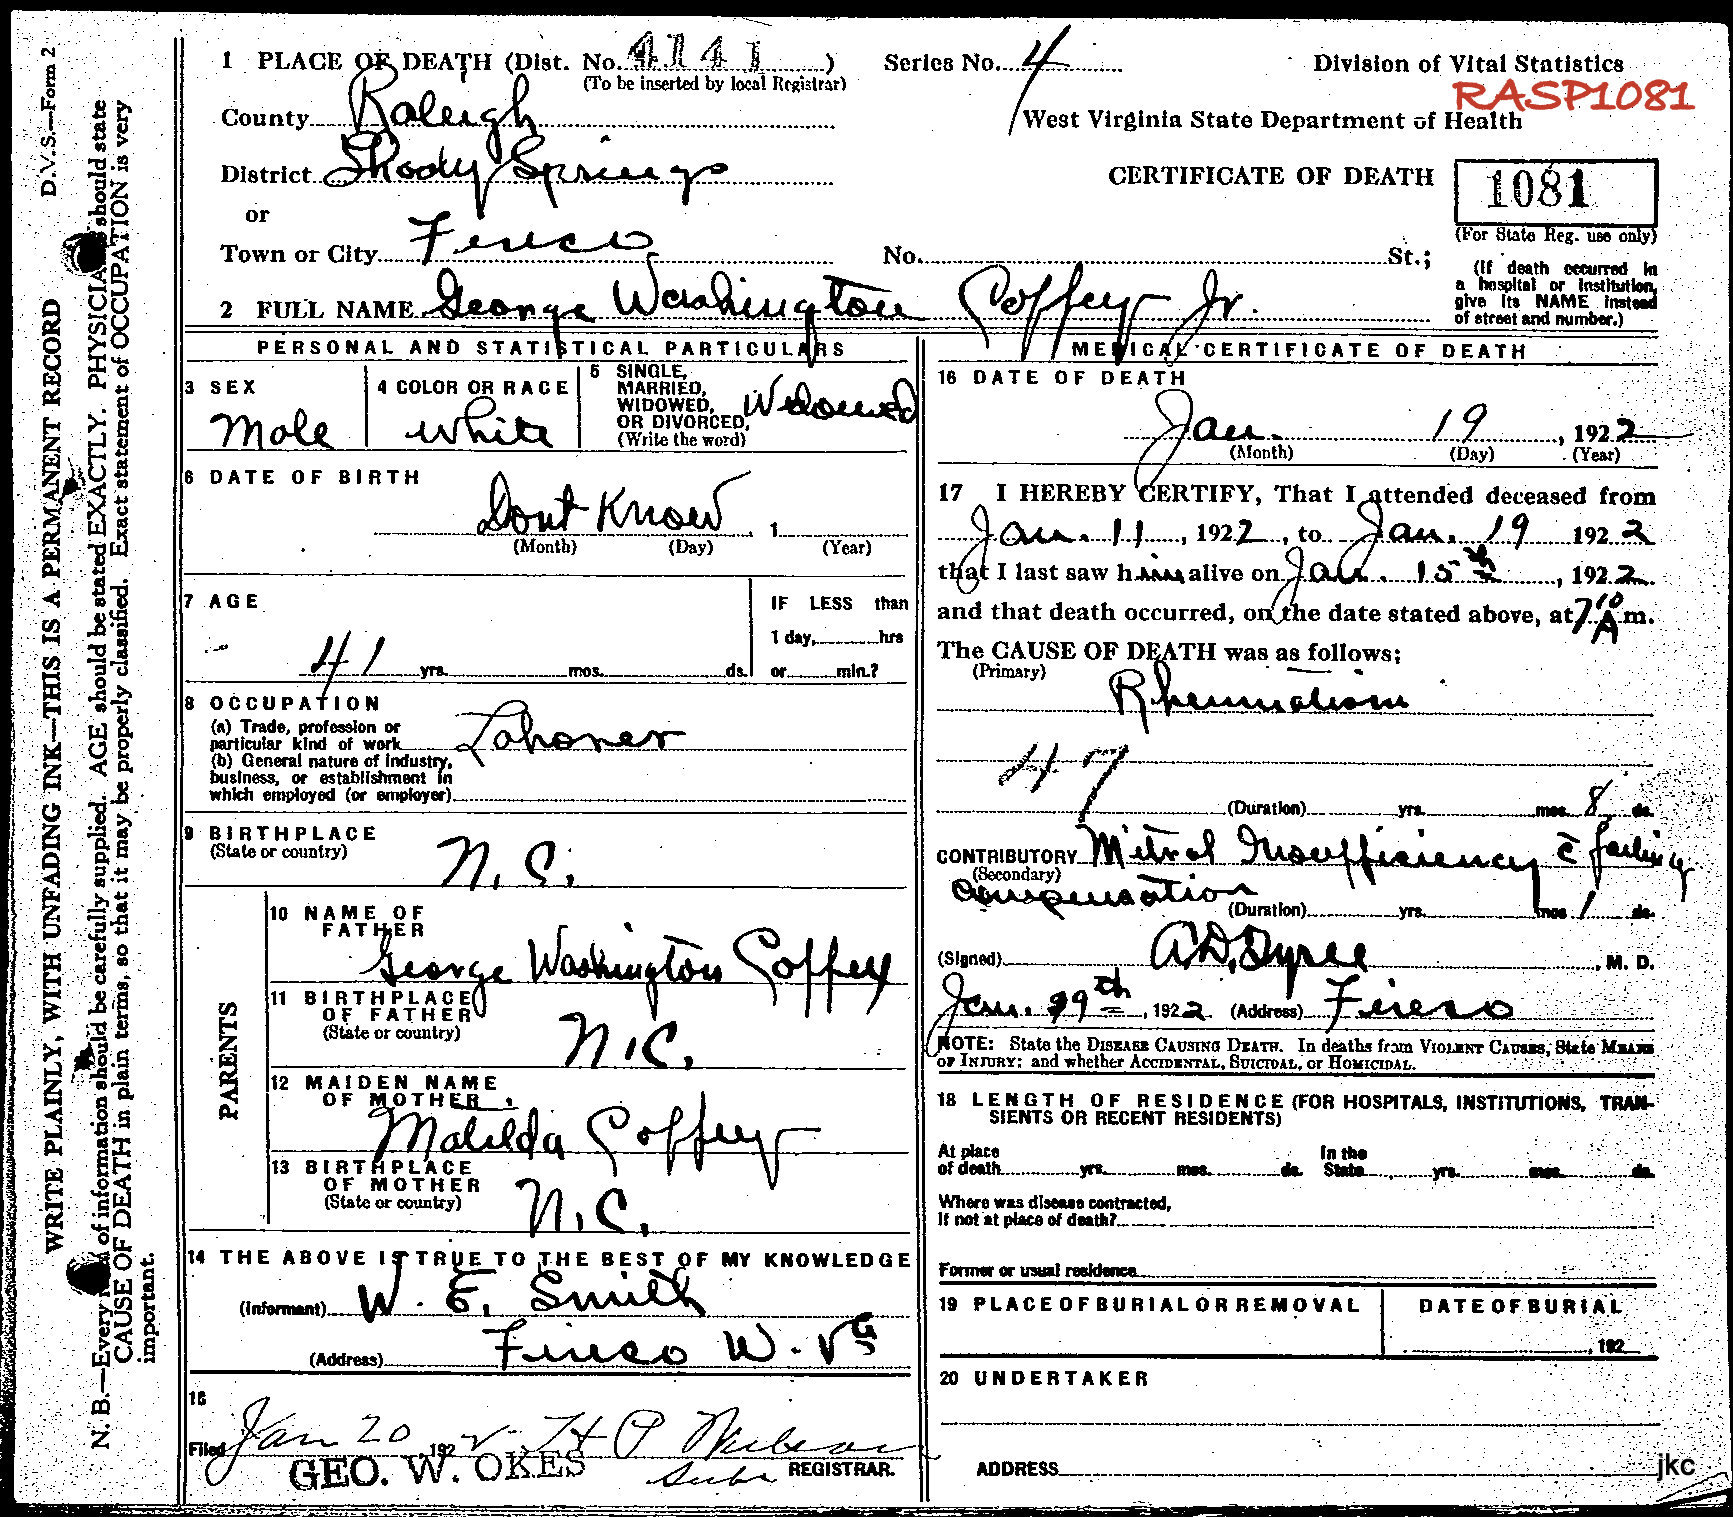 D.V.S.—Form 2
WRITE PLAINLY, WITH UNFADING INK—THIS IS A PERMANENT RECORD
N. B.—Every of information should be carefully supplied. AGE should be stated EXACTLY. PHYSICIA should state
CAUSE OF DEATH in plain terms, so that it may be properly classified. Exact statement of OCCUPATION is very
important.
1 PLACE OF DEATH (Dist. No. 4141)
(To be inserted by local Registrar)
Series No. 4
Division of Vital Statistics
RASP1081
County Raleigh
West Virginia State Department of Health
District Shady Springs
CERTIFICATE OF DEATH
1081
(For State Reg. use only)
or
Town or City Fireco
No. St.;
(If death occurred in
a hospital or institution,
give its NAME instead
of street and number.)
2 FULL NAME George Washington Coffey Jr.
PERSONAL AND STATISTICAL PARTICULARS
3 SEX
Male
4 COLOR OR RACE
White
5 SINGLE,
MARRIED,
WIDOWED,
OR DIVORCED,
(Write the word)
Widowed
6 DATE OF BIRTH
Dont Know 1
(Month) (Day) (Year)
7 AGE
41 yrs. mos. ds.
IF LESS than
1 day, hrs
or min.?
8 OCCUPATION
(a) Trade, profession or
particular kind of work Laborer
(b) General nature of industry,
business, or establishment in
which employed (or employer)
9 BIRTHPLACE
(State or country)
N. C.
PARENTS
10 NAME OF
FATHER
George Washington Coffey
11 BIRTHPLACE
OF FATHER
(State or country)
N. C.
12 MAIDEN NAME
OF MOTHER
Matilda Coffey
13 BIRTHPLACE
OF MOTHER
(State or country)
N. C.
14 THE ABOVE IS TRUE TO THE BEST OF MY KNOWLEDGE
(Informant) W. E. Smith
(Address) Fireco W. Va
15
Filed Jan 20, 1922 H P
GEO. W. OKES
REGISTRAR.
MEDICAL CERTIFICATE OF DEATH
16 DATE OF DEATH
Jan. 19, 1922
(Month) (Day) (Year)
17 I HEREBY CERTIFY, That I attended deceased from
Jan. 11, 1922, to Jan. 19 1922
that I last saw him alive on Jan. 15th, 1922
and that death occurred, on the date stated above, at 7 10 A m.
The CAUSE OF DEATH was as follows;
(Primary)
Rheumatism
47
(Duration) yrs. mos. 8 ds.
CONTRIBUTORY Mitral Insufficiency c̄ failing
(Secondary)
compensation
(Duration) yrs. mos 1 ds.
(Signed) A.D. Tyree, M. D.
Jan. 19th, 1922 (Address) Fireco
NOTE: State the DISEASE CAUSING DEATH. In deaths from VIOLENT CAUSES, State MEANS
OF INJURY; and whether ACCIDENTAL, SUICIDAL, or HOMICIDAL.
18 LENGTH OF RESIDENCE (FOR HOSPITALS, INSTITUTIONS, TRAN-
SIENTS OR RECENT RESIDENTS)
At place
of death yrs. mos. ds.
In the
State yrs. mos. ds.
Where was disease contracted,
If not at place of death?
Former or usual residence
19 PLACE OF BURIAL OR REMOVAL
DATE OF BURIAL
, 192
20 UNDERTAKER
ADDRESS
jkc